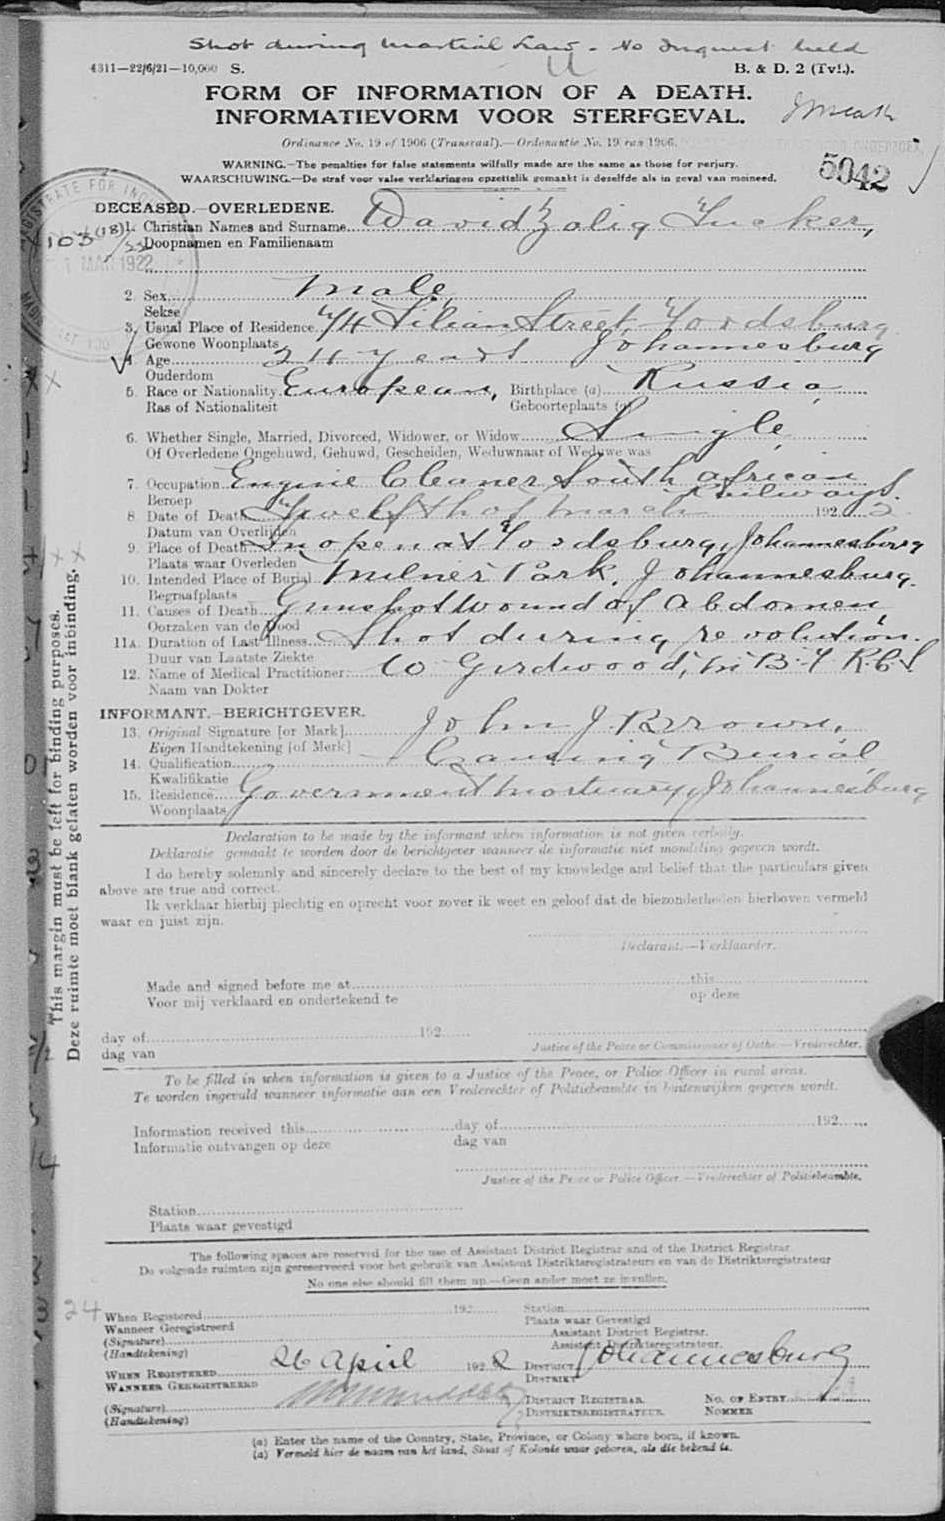 Shot during Martial Law - No Inquest held
4311—22/6/21—10,000 S.
B. & D. 2 (Tvl.).
FORM OF INFORMATION OF A DEATH.
INFORMATIEVORM VOOR STERFGEVAL.
Ordinance No. 19 of 1906 (Transvaal).—Ordonantie No. 19 van 1906.
WARNING.—The penalties for false statements wilfully made are the same as those for perjury.
WAARSCHUWING.—De straf voor valse verklaringen opzettelik gemaakt is dezelfde als in geval van meineed.
5042
DECEASED.—OVERLEDENE.
1. Christian Names and Surname David Zolig Tucker,
Doopnamen en Familienaam
1 MAR 1922
2. Sex Male
Sekse
3. Usual Place of Residence 74 Lilian Street, Fordsburg
Gewone Woonplaats Johannesburg
4. Age 24 years
Ouderdom
5. Race or Nationality European, Birthplace (a) Russia
Ras of Nationaliteit Geboorteplaats (a)
6. Whether Single, Married, Divorced, Widower, or Widow Single
Of Overledene Ongehuwd, Gehuwd, Gescheiden, Weduwnaar of Weduwe was
7. Occupation Engine Cleaner South African
Beroep Railways.
8. Date of Death Twelfth of March 1922
Datum van Overlijden
9. Place of Death In open at Fordsburg, Johannesburg
Plaats waar Overleden
10. Intended Place of Burial Milner Park, Johannesburg.
Begraafplaats
11. Causes of Death Gunshot Wound of Abdomen
Oorzaken van de Dood
11A. Duration of Last Illness Shot during revolution.
Duur van Laatste Ziekte
12. Name of Medical Practitioner W Girdwood, M.B. F.R.C.S
Naam van Dokter
INFORMANT.—BERICHTGEVER.
13. Original Signature [or Mark] John J Brown,
Eigen Handtekening [of Merk]
14. Qualification Causing Burial
Kwalifikatie
15. Residence Government Mortuary, Johannesburg
Woonplaats
Declaration to be made by the informant when information is not given verbally.
Deklaratie gemaakt te worden door de berichtgever wanneer de informatie niet mondeling gegeven wordt.
I do hereby solemnly and sincerely declare to the best of my knowledge and belief that the particulars given
above are true and correct.
Ik verklaar hierbij plechtig en oprecht voor zover ik weet en geloof dat de biezonderheden hierboven vermeld
waar en juist zijn.
Declarant.—Verklaarder.
Made and signed before me at this
Voor mij verklaard en ondertekend te op deze
day of 192
dag van
Justice of the Peace or Commissioner of Oaths.—Vrederechter.
To be filled in when information is given to a Justice of the Peace, or Police Officer in rural areas.
Te worden ingevuld wanneer informatie aan een Vrederechter of Politiebeambte in buitenwijken gegeven wordt.
Information received this day of 192
Informatie ontvangen op deze dag van
Justice of the Peace or Police Officer.—Vrederechter of Politiebeambte.
Station
Plaats waar gevestigd
The following spaces are reserved for the use of Assistant District Registrar and of the District Registrar
De volgende ruimten zijn gereserveerd voor het gebruik van Assistent Distriktsregistrateurs en van de Distriktsregistrateur
No one else should fill them up.—Geen ander moet ze invullen.
24
When Registered 192 Station
Wanneer Geregistreerd Plaats waar Gevestigd
(Signature) Assistant District Registrar.
(Handtekening) Assistent Distriktsregistrateur.
WHEN REGISTERED 26 April 1922 DISTRICT Johannesburg
WANNEER GEREGISTREERD DISTRIKT
(Signature) DISTRICT REGISTRAR. NO. OF ENTRY
(Handtekening) DISTRIKTSREGISTRATEUR. NOMMER
(a) Enter the name of the Country, State, Province, or Colony where born, if known.
(a) Vermeld hier de naam van het land, Staat of Kolonie waar geboren, als die bekend is.
This margin must be left for binding purposes.
Deze ruimte moet blank gelaten worden voor inbinding.